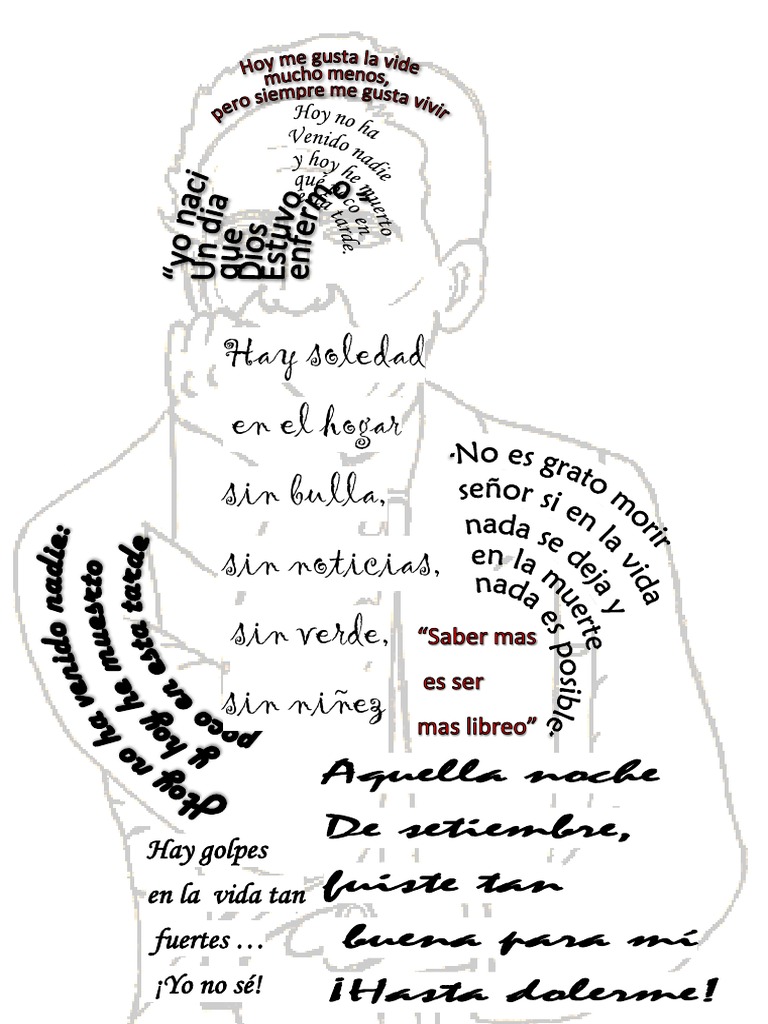 Hoy me gusta la vide
mucho menos,
pero siempre me gusta vivir
Hoy no ha
Venido nadie
y hoy he muerto
qué poco en
esta tarde.
“yo naci
Un dia
que
Dios
Estuvo
enfermo”
Hay soledad
en el hogar
sin bulla,
sin noticias,
sin verde,
sin niñez
.No es grato morir
señor si en la vida
nada se deja y
en la muerte
nada es posible.
Hoy no ha venido nadie:
y hoy he muesrto
poco en esta tarde
“Saber mas
es ser
mas libreo”
Aquella noche
De setiembre,
fuiste tan
buena para mí
¡Hasta dolerme!
Hay golpes
en la vida tan
fuertes …
¡Yo no sé!